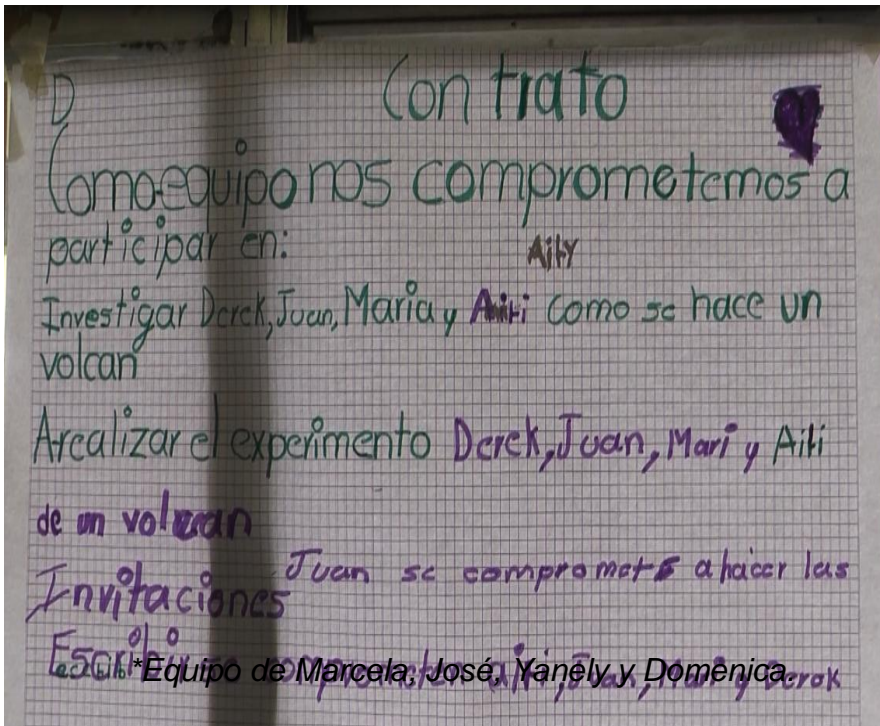 D Contrato
Como equipo nos comprometemos a
participar en:
Aily
Investigar Derek, Juan, Maria y Airi como se hace un
volcan
A realizar el experimento Derek, Juan, Mari y Aili
de un volcan
Juan se compromete a hacer las
Invitaciones
*Equipo de Marcela, José, Yanely y Domenica.